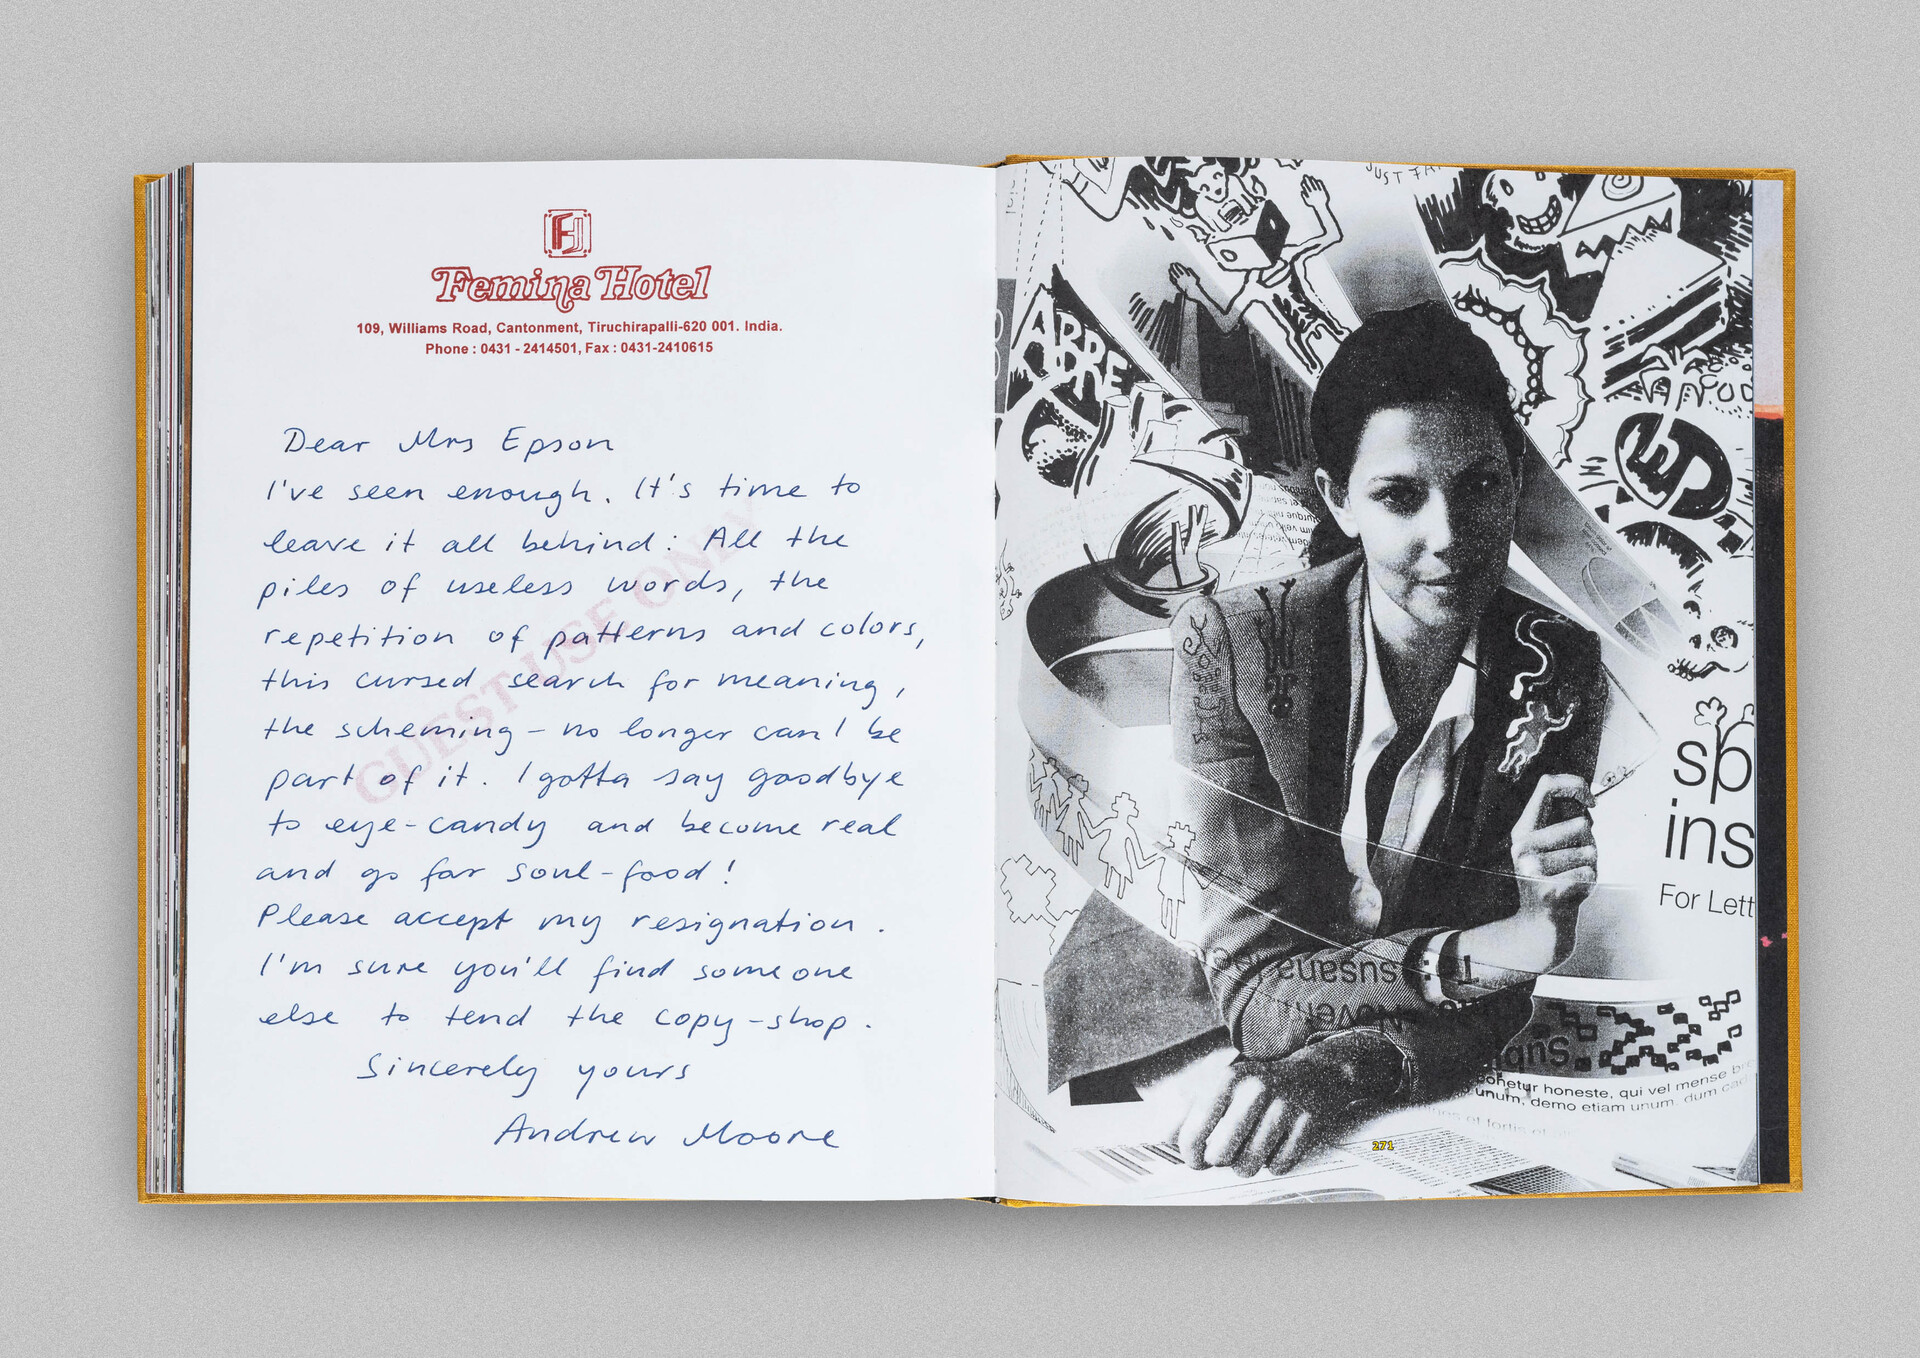 Femina Hotel
109, Williams Road, Cantonment, Tiruchirapalli-620 001. India.
Phone : 0431 - 2414501, Fax : 0431-2410615
GUEST USE ONLY
Dear Mrs Epson
I've seen enough. It's time to
leave it all behind: All the
piles of useless words, the
repetition of patterns and colors,
this cursed search for meaning,
the scheming - no longer can I be
part of it. I gotta say goodbye
to eye-candy and become real
and go for soul-food!
Please accept my resignation.
I'm sure you'll find someone
else to tend the copy-shop.
Sincerely yours
Andrew Moore
JUST
sp
ins
For Lett
To: susana
honeste, qui vel mense
unum, demo etiam unum. dum
et fortis et
271